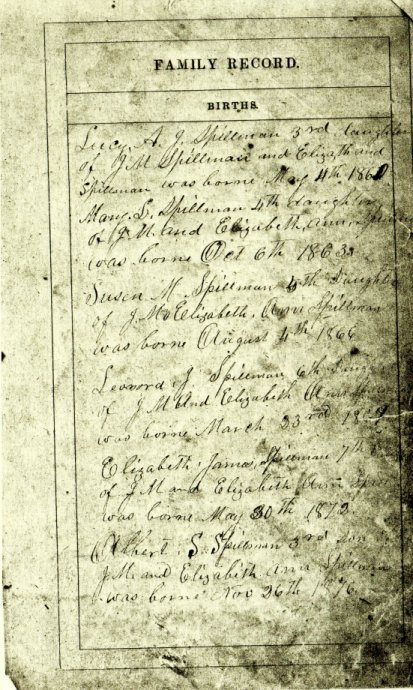 FAMILY RECORD.
BIRTHS.
Lucy A. J. Spillman 3rd daughter
of J M Spillman and Elizabeth and
Spillman was borne May 4th 1860
Mary L. Spillman 4th daughter
of J. M. and Elizabeth Ann Spillman
was borne Oct 6th 1863
Susen M Spillman 5th Daughter
of J. M. Elizabeth Ann Spillman
was borne August 4th 1866
Leonord J. Spillman 6th
of J M And Elizabeth Ann
was borne March 23rd
Elizabeth James Spillman 7th
of J M and Elizabeth Ann
was borne May 30th 1873
Albert S. Spillman 3rd son
J M and Elizabeth Ann Spillman
was borne Nov 26th 1876